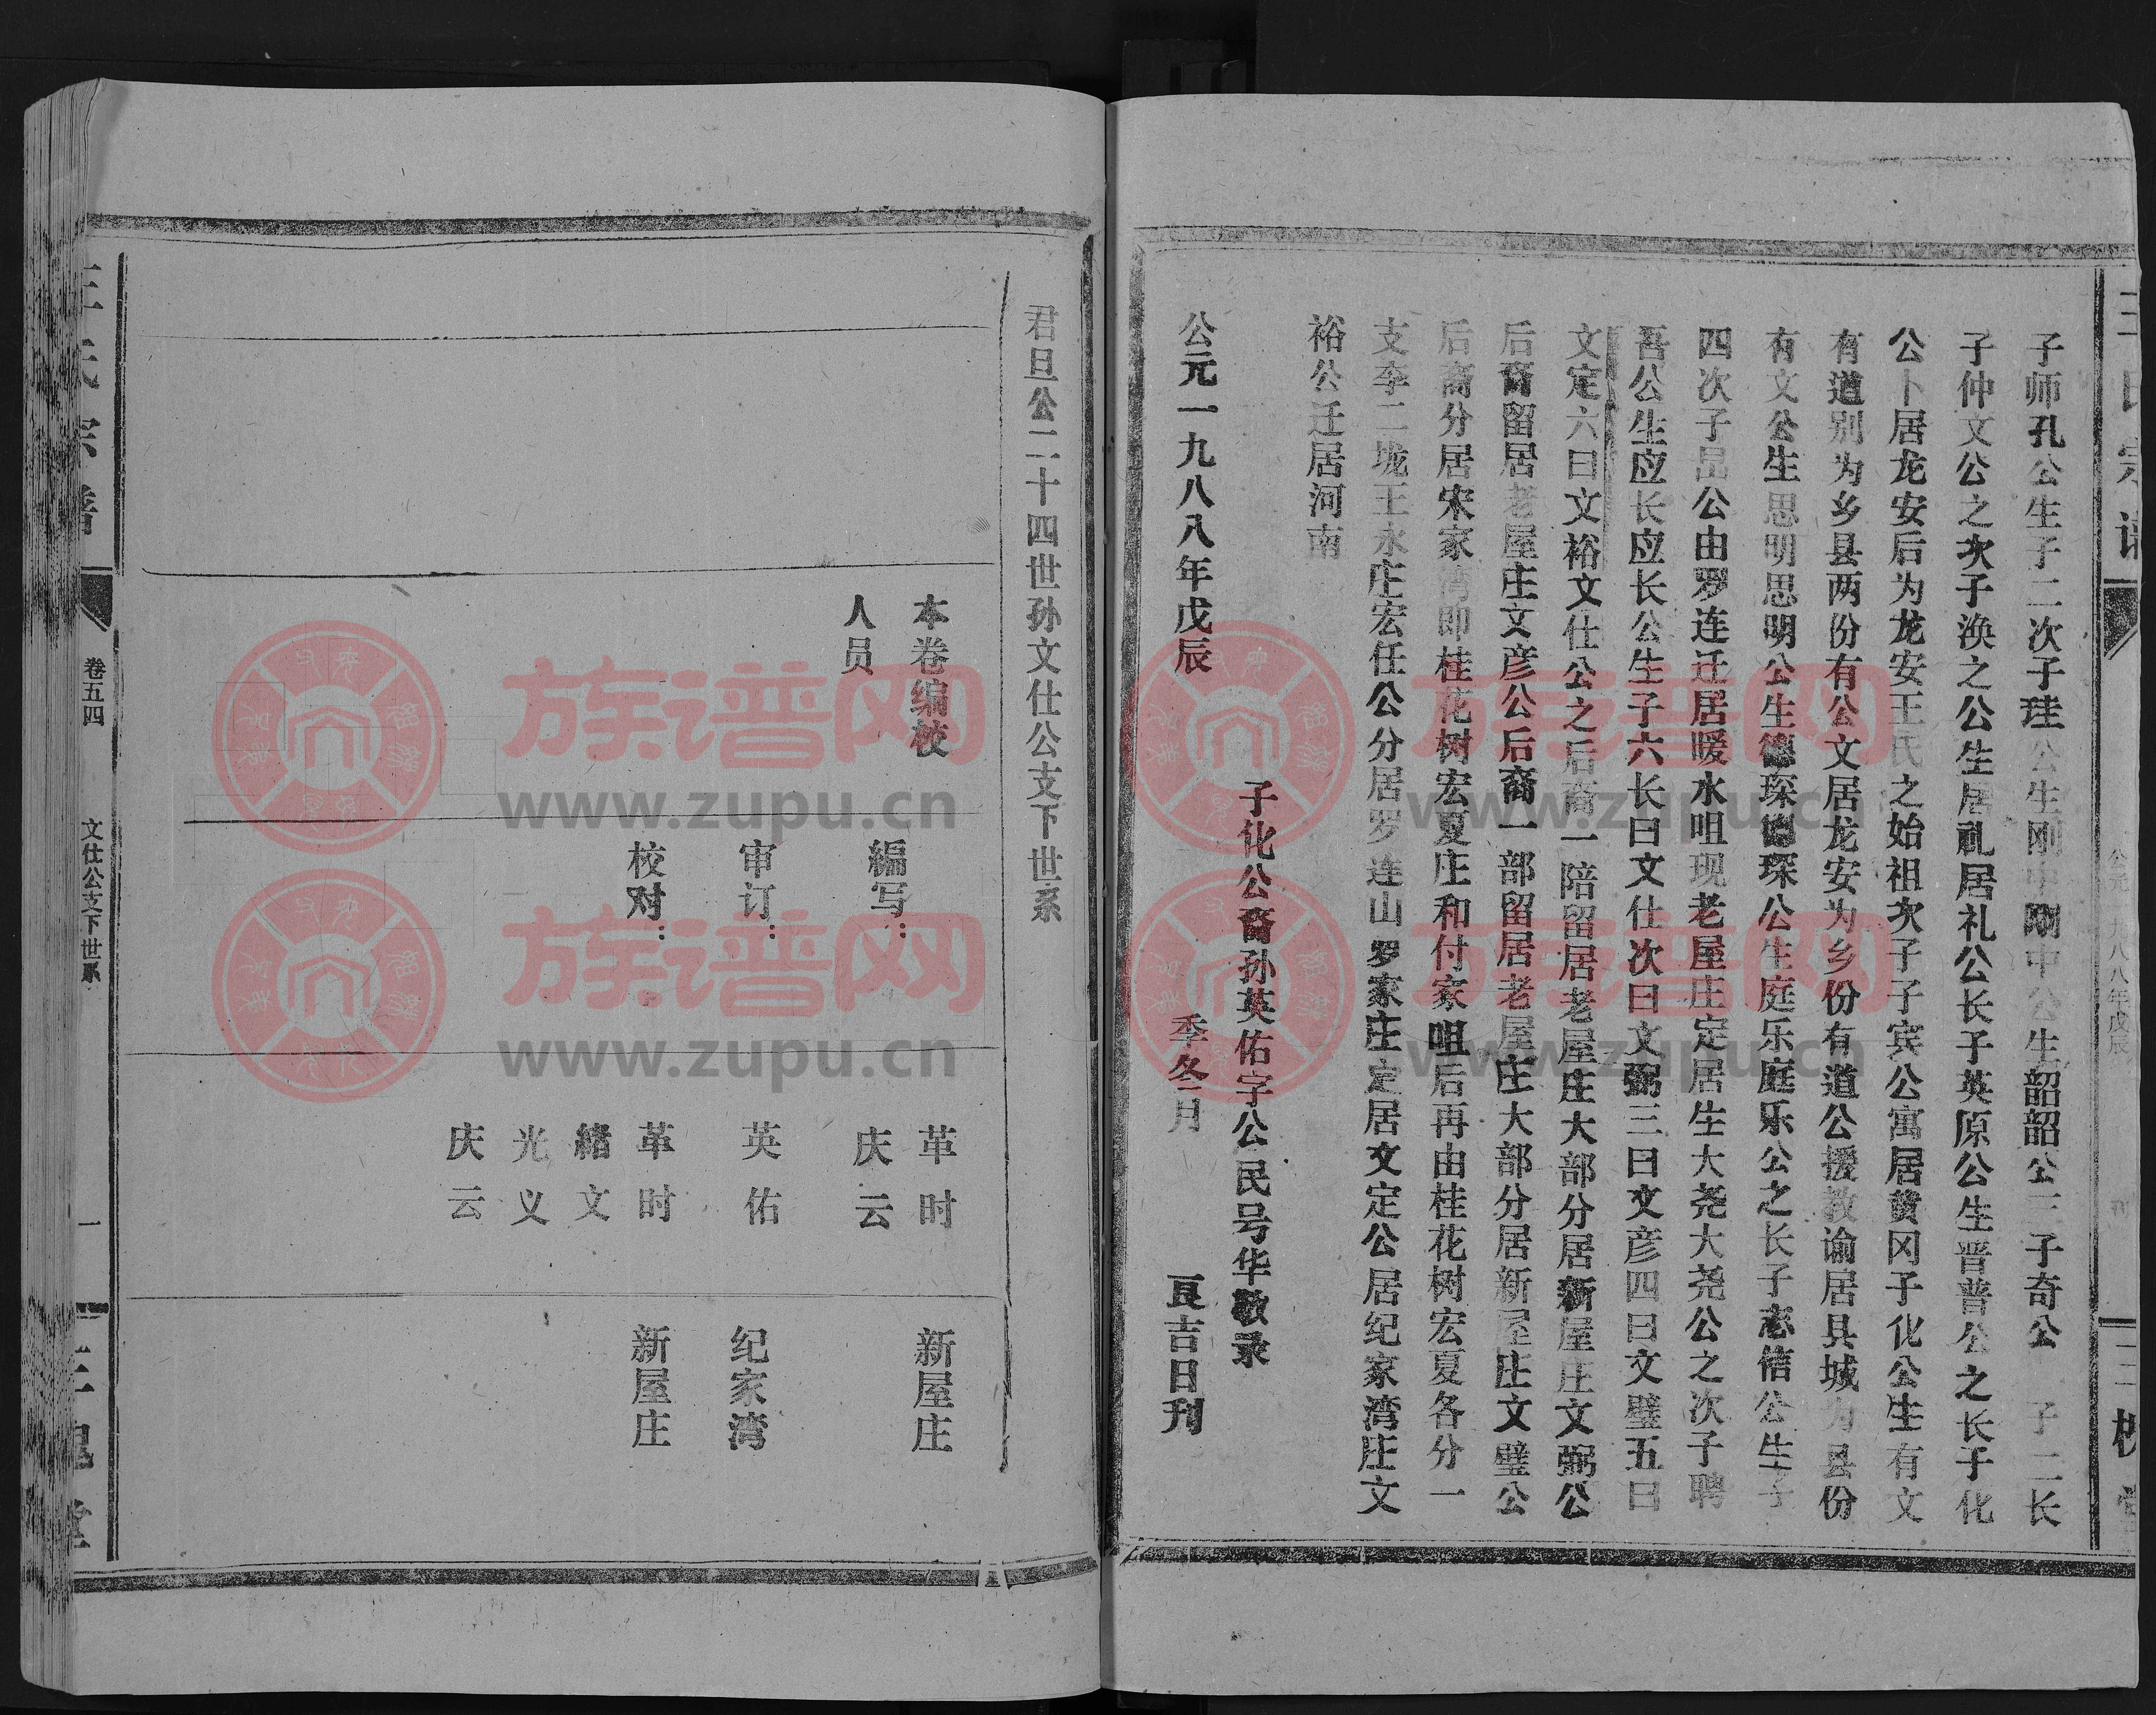 子师孔公生子二次子珪公生刚中刚中公生韶韶公三子奇公 子二长
子仲文公之次子涣之公生居礼居礼公长子英原公生晋普公之长子化
公卜居龙安后为龙安王氏之始祖次子子宾公寓居黄冈子化公生有文
有道别为乡县两份有公文居龙安为乡份有道公援教谕居具城为县份
有文公生思明思明公生德琛德琛公生庭乐庭乐公之长子志信公生子
四次子昆公由罗连迁居暖水咀现老屋庄定居生大尧大尧公之次子聘
吾公生应长应长公生子六长曰文仕次曰文弼三曰文彦四曰文璧五曰
文定六曰文裕文仕公之后裔一陪留居老屋庄大部分居新屋庄文弼公
后裔留居老屋庄文彦公后裔一部留居老屋庄大部分居新屋庄文璧公
后裔分居宋家湾即桂花树宏夏庄和付家咀后再由桂花树宏夏各分一
支李二垅王永庄宏任公分居罗连山罗家庄定居文定公居纪家湾庄文
裕公迁居河南
子化公裔孙英佑字公民号华敬录
公元一九八八年戊辰 季冬月 良吉日刊
君旦公二十四世孙文仕公支下世系
本卷编校
人员
编写：
革时 新屋庄
庆云
审订：
英佑 纪家湾
校对：
革时 新屋庄
绪文
光义
庆云
王氏宗谱
卷五四
文仕公支下世系
一
三槐堂
族谱网
www.zupu.cn
族谱网
www.zupu.cn
族谱网
www.zupu.cn
族谱网
www.zupu.cn